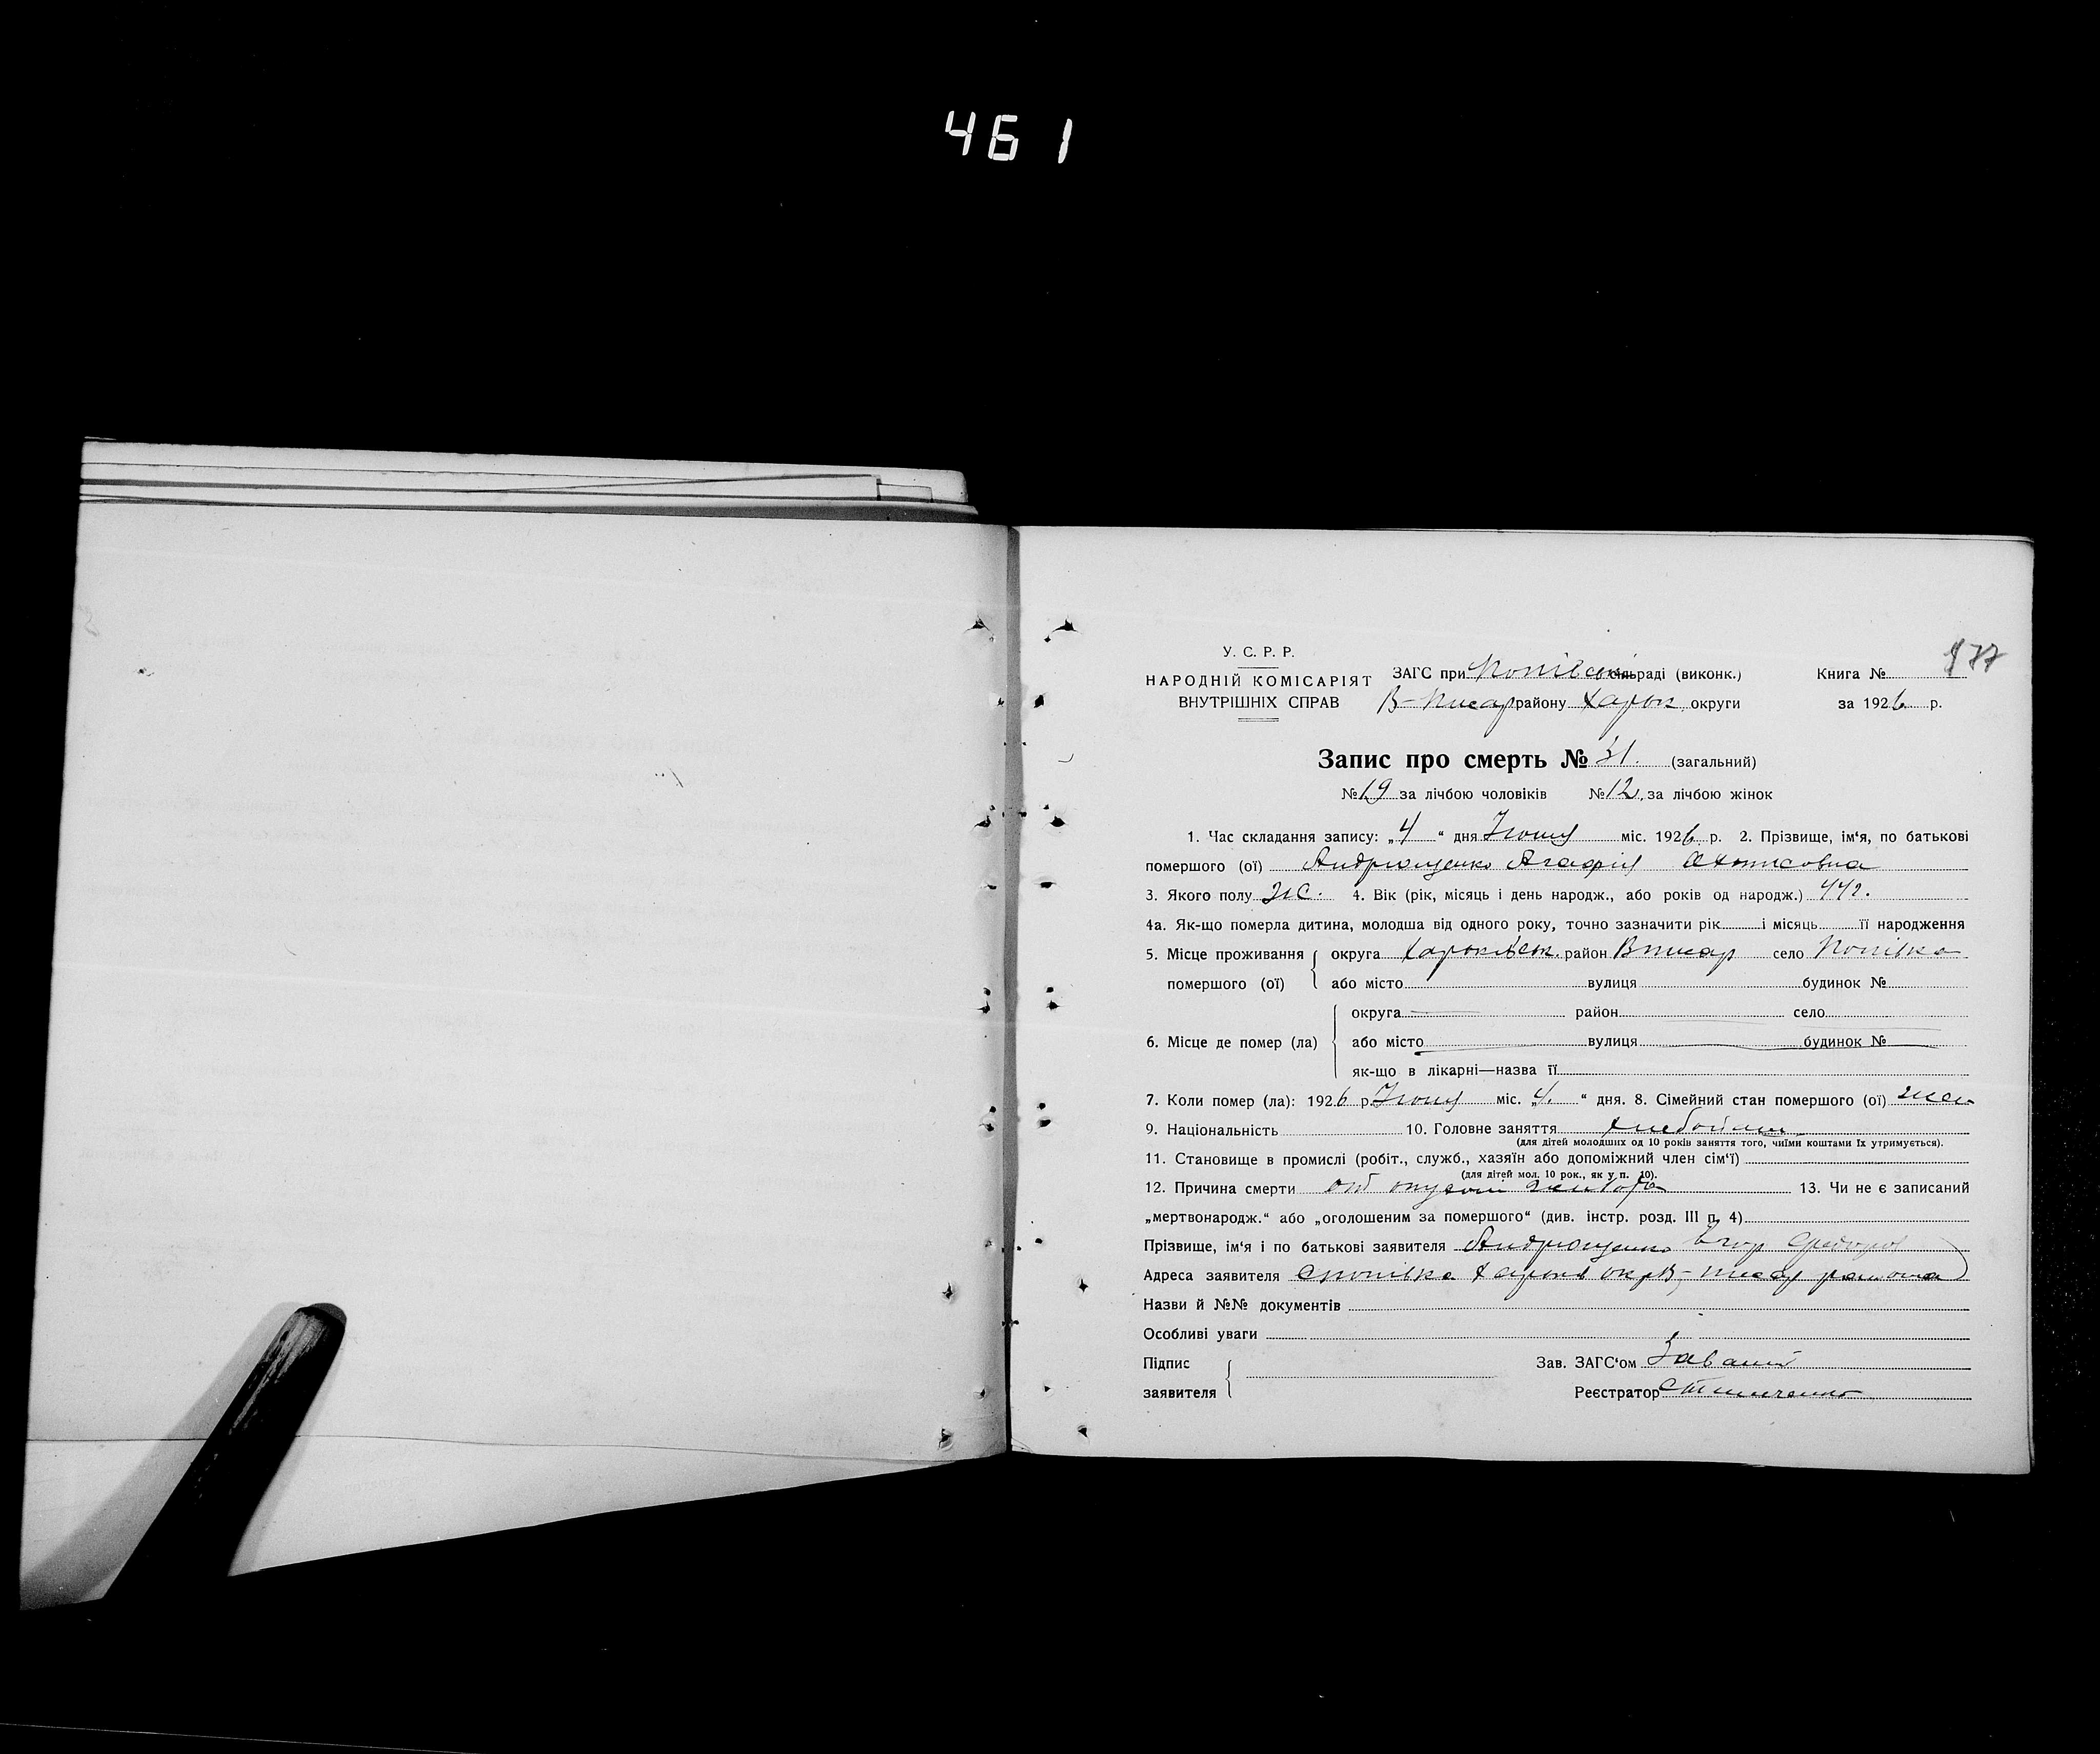 461
У. С. Р. Р.
НАРОДНІЙ КОМІСАРІЯТ
ВНУТРІШНІХ СПРАВ
ЗАГС при Попівськ сільраді (виконк.)
В-Писар району Харьк округи
Книга №
за 1926 р.
Запис про смерть № 31. (загальний)
№ 19 за лічбою чоловіків № 12 за лічбою жінок
1. Час складання запису: „4“ дня міс. 1926 р. 2. Прізвище, ім‘я, по батькові
помершого (ої) Андрющенко Агафія
3. Якого полу ж. 4. Вік (рік, місяць і день народж., або років од народж.) 44
4а. Як-що померла дитина, молодша від одного року, точно зазначити рік і місяць її народження
5. Місце проживання помершого (ої) { округа Харьківськ. район Вписар село Попівка
або місто вулиця будинок №
6. Місце де помер (ла) { округа район село
або місто вулиця будинок №
як-що в лікарні—назва її
7. Коли помер (ла): 1926 р. міс. „4.“ дня. 8. Сімейний стан помершого (ої)
9. Національність 10. Головне заняття
(для дітей молодших од 10 років заняття того, чиїми коштами їх утримується).
11. Становище в промислі (робіт., служб., хазяїн або допоміжний член сім‘ї)
(для дітей мол. 10 рок., як у п. 10).
12. Причина смерти от живота 13. Чи не є записаний
„мертвонародж.“ або „оголошеним за помершого“ (див. інстр. розд. III п. 4)
Прізвище, ім‘я і по батькові заявителя Андрющенко Егор Федоров
Адреса заявителя с Попівка Харьків окр В-Писар района
Назви й №№ документів
Особливі уваги
Підпис заявителя {
Зав. ЗАГС‘ом
Реєстратор